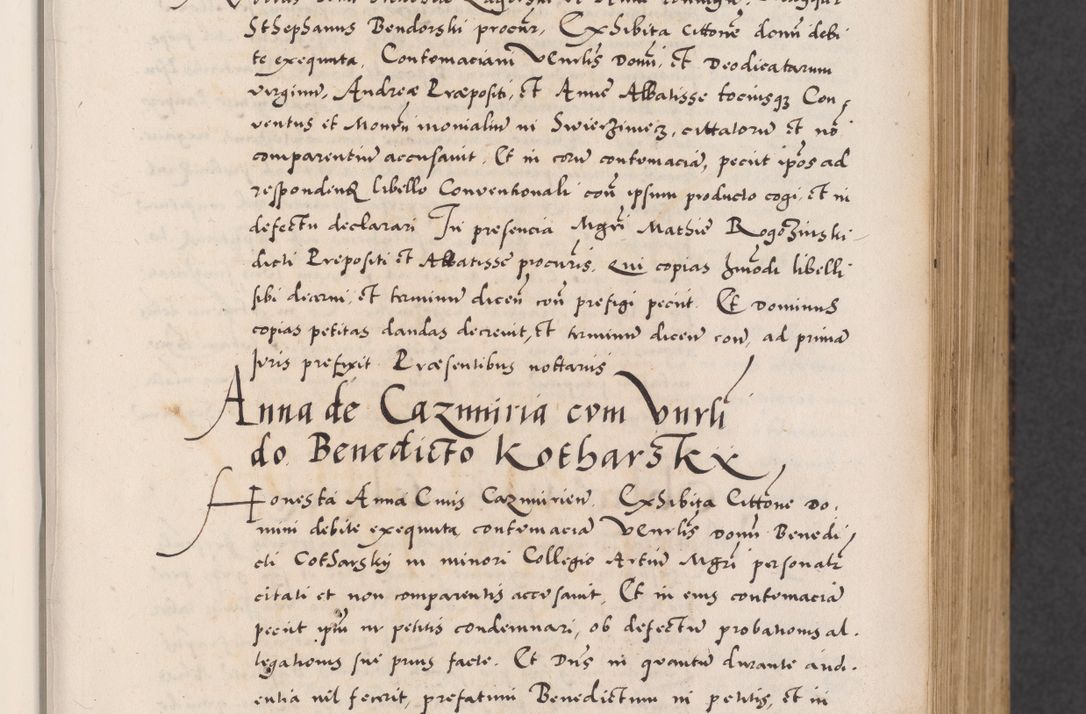 Sthephanus Bendorski procur, Exhibita citone domi debi
te exequuta, Contumaciam Venrlis Domi, et Deodicatarum
virginum, Andreæ Præpositi, et Annæ Abbatisse tociusq Con
ventus et Moniti monialium in Swierziniecz, cittatorum et no
comparentium accusavit. Et in eorum contumaciã, peciit ipos ad
respondend libello Conventionali con ipsum producto cogi, et in
defectu declarari In presencia Mgri Mathiæ Rogozinski
dicti Præpositi et Abbatisse procuris. Qui copias hmodi libelli
sibi decerni, et terminum dicen con prefigi peciit. Et Dominus
copias petitas dandas decrevit, et terminum dicen con, ad primã
Juris prefixit. Præsentibus nottariis
Anna de Cazmiria cvm Vnrli
do. Benedicto Kotharskx
Honesta Anna Civis Cazmirien. Exhibita Cittone Do.
mini debite exequuta, contumaciã Venrlis Domi Benedi
cti Cotharsky in minori Collegio Artium Mgri personatr
citati et non comparentis accusavit. Et in eius contumaciã
peciit ipm in petitis condemnari, ob defectum probationis al.
legationis sue prius facte. Et Dns in quantum durante audi.
entia nil fecerit, prefatum Benedictum in petitis, et in